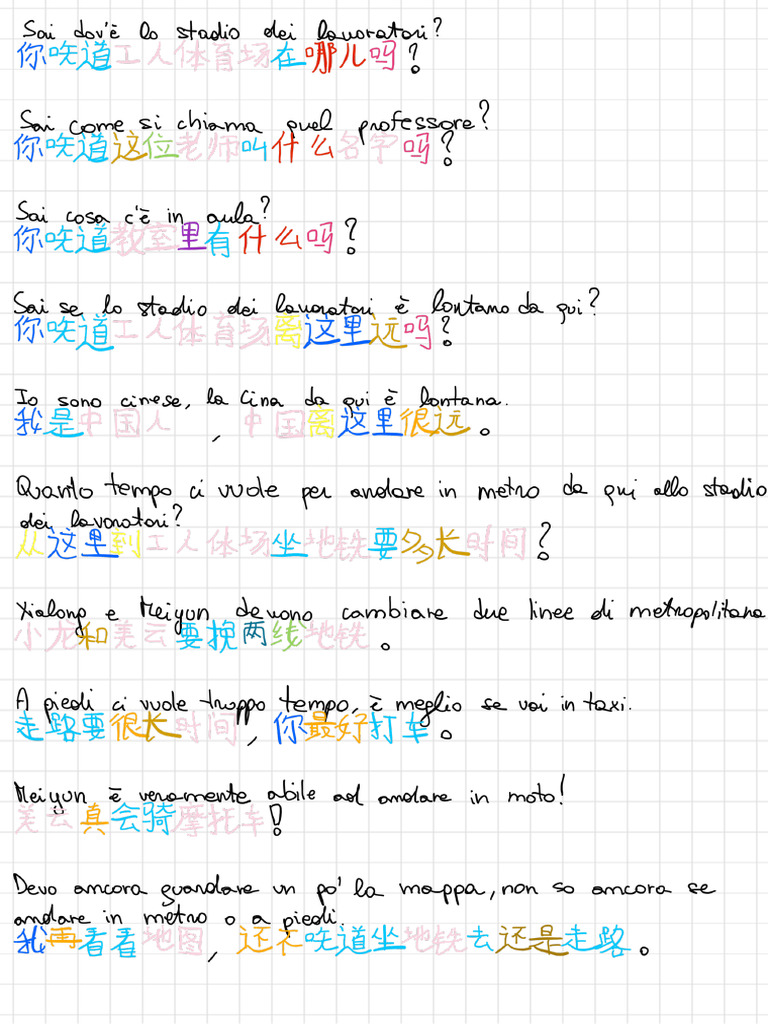 Sai dov'è lo stadio dei lavoratori?
你咲道工人体育场在哪儿吗?
Sai come si chiama quel professore?
你咲道这位老师叫什么名字吗?
Sai cosa c'è in aula?
你咲道教室里有什么吗?
Sai se lo stadio dei lavoratori è lontano da qui?
你咲道工人体育场离这里远吗?
Io sono cinese, la Cina da qui è lontana.
我是中国人, 中国离这里很远。
Quanto tempo ci vuole per andare in metro da qui allo stadio
dei lavoratori?
从这里到工人体场坐地铁要多长时间?
Xialong e Meiyun devono cambiare due linee di metropolitana
小龙和美云要换两线地铁。
A piedi ci vuole troppo tempo, è meglio se vai in taxi.
走路要很长时间, 你最好打车。
Meiyun è veramente abile ad andare in moto!
美云真会骑摩托车!
Devo ancora guardare un po' la mappa, non so ancora se
andare in metro o a piedi.
我再看看地图, 还不咲道坐地铁去还是走路。